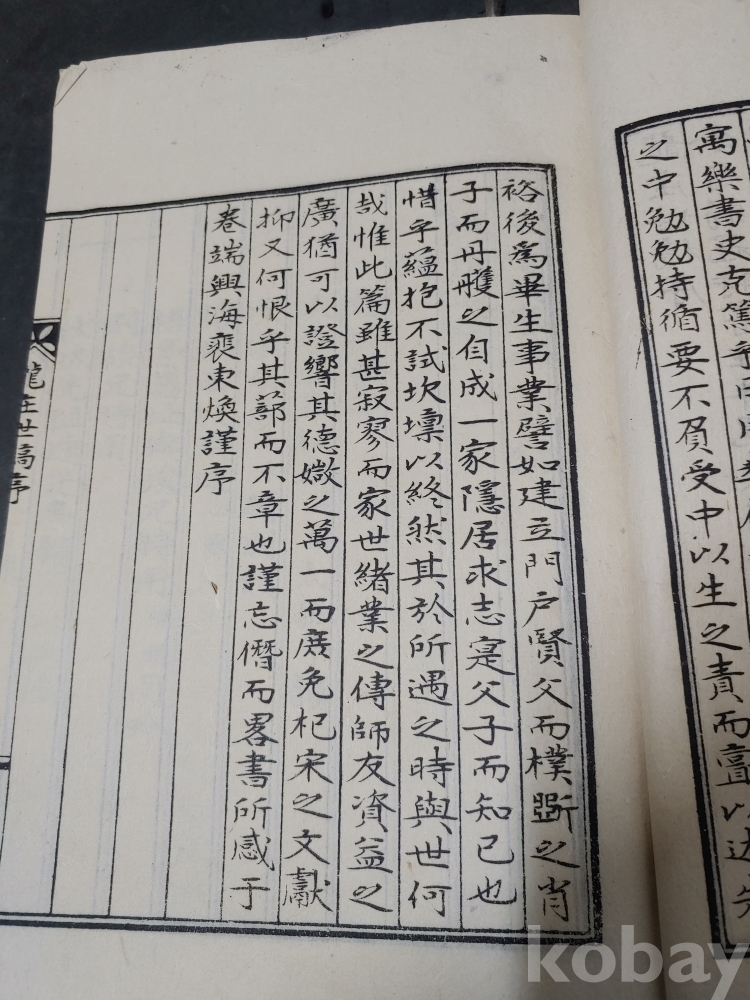 寓樂書史克篤
之中勉勉持循要不負受中以生之責而亶以
裕後爲畢生事業譬如建立門户賢父而樸斲之肖
子而丹雘之自成一家隱居求志寔父子而知已也
惜乎蘊抱不試坎壈以終然其於所遇之時與世何
哉惟此篇雖甚寂寥而家世緖業之傳師友資益之
廣猶可以證響其德媺之萬一而庶免杞宋之文獻
抑又何恨乎其蔀而不章也謹忘僭而畧書所感于
卷端興海裵東煥謹序
世稿序
kobay